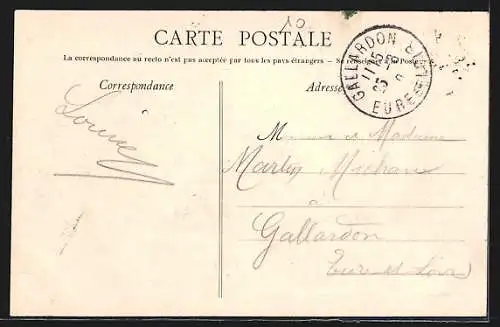 10
CARTE POSTALE
La correspondance au recto n'est pas acceptée par tous les pays étrangers — Se renseigner à la Poste
Correspondance
Adresse
GALLARDON
11
25
EURE
Louise
Monsieur et Madame
Martin Michaux
à
Gallardon
Eure et Loir